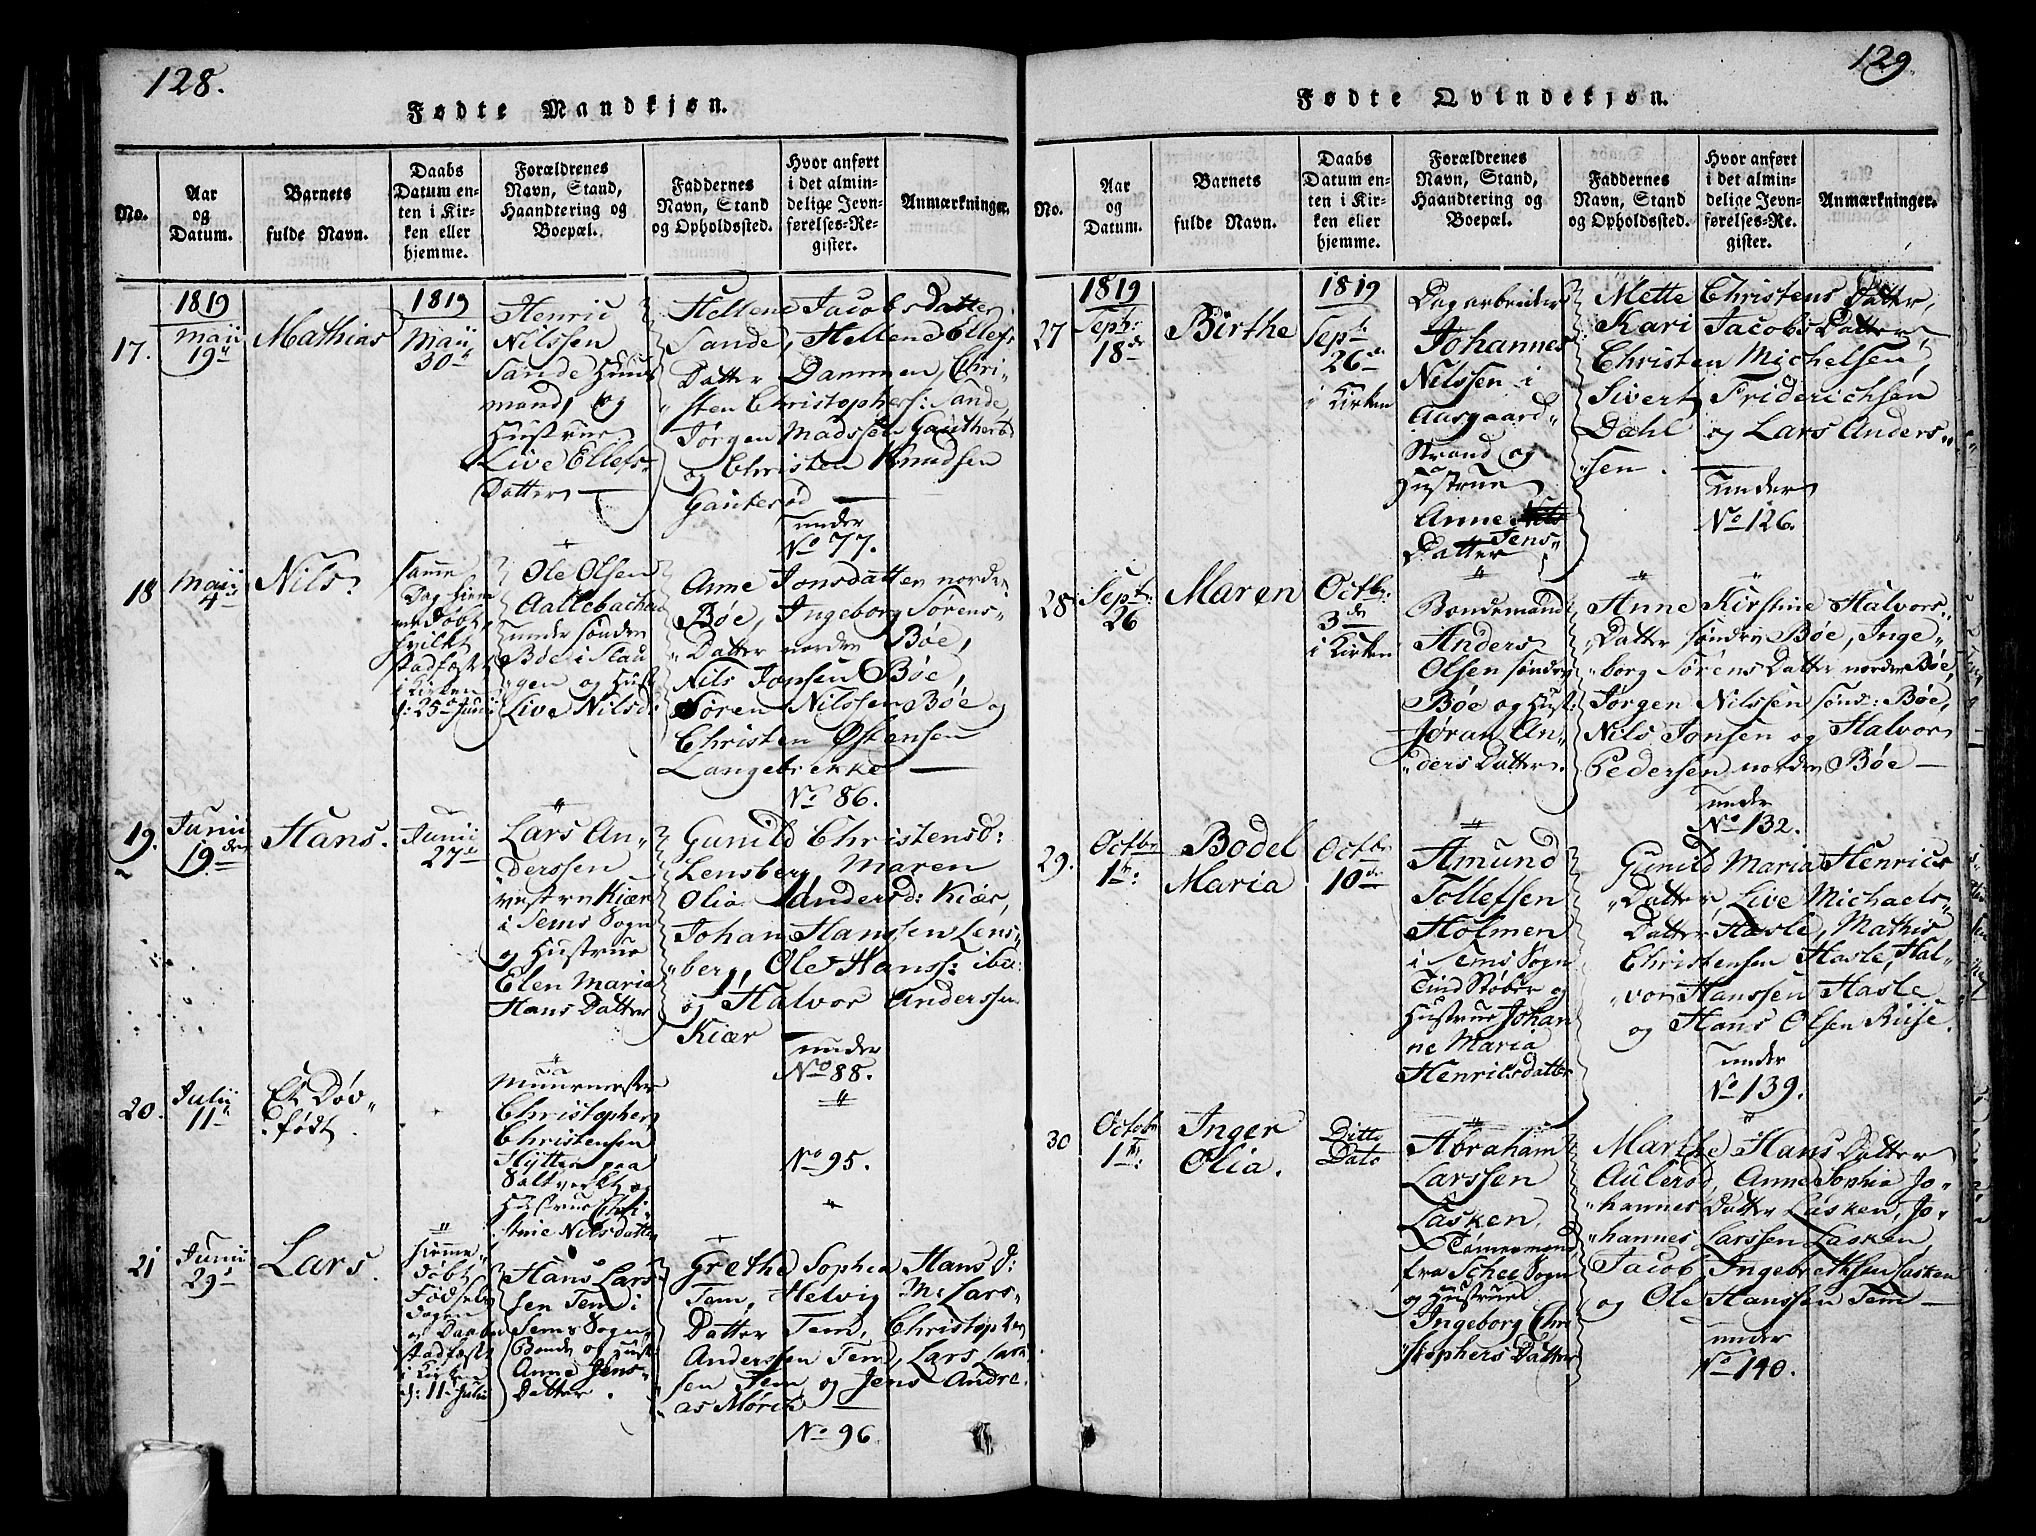 128.
Fødte Mandkjøn.
No.
Aar
og
Datum.
Barnets
fulde Navn.
Daabs
Datum en-
ten i Kir-
ken eller
hjemme.
Forældrenes
Navn, Stand,
Haandtering og
Boepæl.
Faddernes
Navn, Stand
og Opholdssted.
Hvor anført
i det almin-
delige Jevn-
førelses-Re-
gister.
Anmærkninger.
17.
1819
Maii
19
Mathias
1819
Maii
30
Henric
Nilssen
Sande Huus
mand, og
Hustrue
Live Ellefs
Datter
Hellene Jacobs Datter
Sande, Hellene Ellefs
Datter Dammen, Chri-
sten Christophers: Sande,
Jørgen Madssen Gautherød
og Christen Knudsen
Gauterød
under
No 77.
18
Maii
4
Nils
Samme
Dag hiem
me døbt,
hvilket
stadfæstet
i Kirken
d: 25 Junii
Ole Olsen
Aallebachen
under søndre
Bøe i Slau
gen og Hust:
Live Nilsd:
Anne Jonsdatter nordre
Bøe, Ingeborg Sørens
Datter nordre Bøe,
Nils Jonsen Bøe,
Søren Nilssen Bøe og
Christen Østensen
Langebrekke
No 86.
19.
Junii
19
Hans.
Junii
27
Lars An-
derssen
vestre Kiær
i Sems Sogn
og Hustrue
Elen Maria
Hans Datter
Gunild Christensd:
Lensberg, Maren
Olia Andersd: Kiær,
Johan Hanssen Lens-
berg, Ole Hanss: ibid:
og Halvor Anderssen
Kiær
under
No 88.
20.
Julii
11
Et Død-
født.
Muurmester
Christopher
Christensen
Hytten paa
Saltverket og
Hustrue Chri-
stine Nilsdatter
No 95.
21
Junii
29
Lars
Hiemme-
døbt
Fødsels
dagen
og Daaben
stadfæstet
i Kirken
d: 11 Julii
Hans Lars
sen Tem i
Sems Sogn,
Bonde og Hust:
Anne Jens
Datter.
Grethe Sophia Hans d:
Tem, Helvig M: Lars-
Datter Tem, Christopher
Anderssen Tem, Lars Lars
sen Tem og Jens Andre
as Mørch
No 96.
129.
Fødte Qvindekjøn.
No.
Aar
og
Datum.
Barnets
fulde Navn.
Daabs
Datum en-
ten i Kir-
ken eller
hjemme.
Forældrenes
Navn, Stand,
Haandtering og
Boepæl.
Faddernes
Navn, Stand
og Opholdssted.
Hvor anført
i det almin-
delige Jevn-
førelses-Re-
gister.
Anmærkninger.
27
1819
Septb:
18
Birthe
1819
Sept:
26
i Kirken
Dagarbeider
Johannes
Nilssen i
Aasgaard-
Strand og
Hustrue
Anne
Jens-
Datter
Mette Christens Datter,
Kari Jacobs Datter
Christen Michelsen,
Sivert Friderichsen
Dahl og Lars Anders-
sen.
under
No 126.
28
Septb:
26
Maren
Octbr:
3
i Kirken
Bondemand
Anders
Olsen søndre
Bøe og Hust:
Jøran An-
ders Datter.
Anne Kirstine Halvors
Datter søndre Bøe, Inge-
borg Sørens Datter nordre Bøe,
Jørgen Nilssen sønd: Bøe,
Nils Jonsen og Halvor
Pedersen nordre Bøe
under
No 132.
29.
Octbr
1
Bodel
Maria
Octbr
10
Amund
Tollefsen
Holmen
i Sems Sogn
Tindstøber og
Hustrue Johan
ne Maria
Henricsdatter
Gunild Maria Henrics
Datter, Live Michaels-
Datter Hasle, Mathis
Christensen Hasle, Hal-
vor Hanssen Hasle
og Hans Olsen Riise.
under
No 139.
30
Octobr
1
Inger
Olia.
Ditto
Dato
Abraham
Larssen
Lasken,
Tømmermand
fra Schee Sogn
og Hustrue
Ingeborg Chri
stophers Datter
Marthe Hans Datter
Aulerød, Anne Sophia Jo-
hannes Datter Lasken, Jo-
hannes Larssen Lasken
Jacob Ingebrethsen Lasken
og Ole Hanssen Tem
under
No 140.